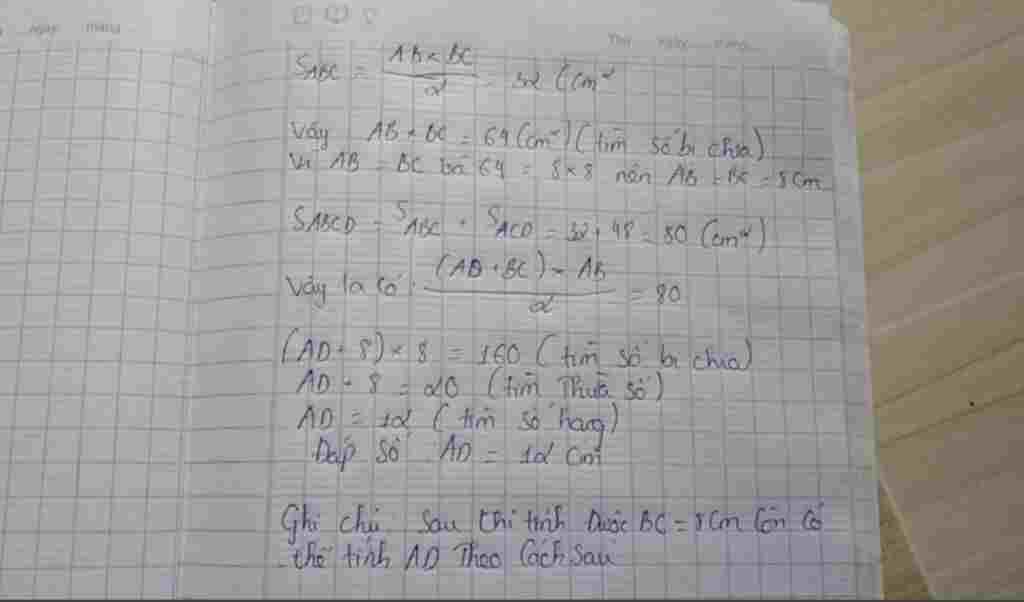 ngày tháng
Thứ ngày tháng
S_ABC = (AB × BC)/2 = 32 (cm²
Vậy AB × BC = 64 (cm²) (tìm số bị chia)
Vì AB = BC mà 64 = 8 × 8 nên AB = BC = 8cm
S_ABCD = S_ABC + S_ACD = 32 + 48 = 80 (cm²)
Vậy ta có: ((AD + BC) × AB)/2 = 80
(AD + 8) × 8 = 160 (tìm số bị chia)
AD + 8 = 20 (tìm Thừa số)
AD = 12 (tìm số hạng)
Đáp số AD = 12 cm
Ghi chú sau khi tính Được BC = 8cm Còn Có
thể tính AD Theo Cách Sau